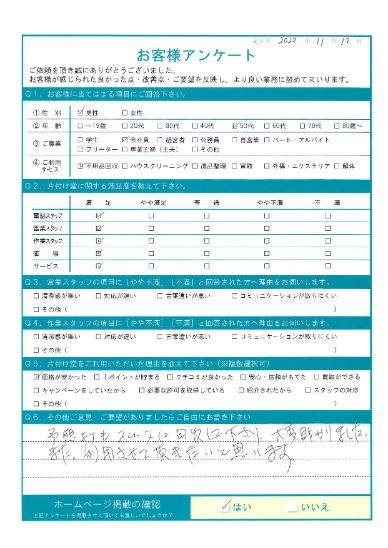 記入日 2022 年 11 月 12 日
お客様アンケート
ご依頼を頂き誠にありがとうございました。
お客様が感じられた良かった点・改善点・ご要望を反映し、より良い業務に努めてまいります。
Q１．お客様に当てはまる項目にご回答下さい。
① 性 別 ☑男性 □女性
② 年 齢 □～19歳 □20代 □30代 □40代 ☑50代 □60代 □70代 □80歳～
③ ご職業 □学生 ☑会社員 □経営者 □公務員 □自営業 □パート・アルバイト
□フリーター □専業主婦（主夫） □その他
④ ご利用サービス ☑不用品回収 □ハウスクリーニング □遺品整理 □買取 □外構・エクステリア □解体
Q２．片付け堂に関する満足度を教えて下さい。
満 足 やや満足 普 通 やや不満 不 満
電話スタッフ ☑ □ □ □ □
営業スタッフ ☑ □ □ □ □
作業スタッフ ☑ □ □ □ □
価 格 ☑ □ □ □ □
サービス ☑ □ □ □ □
Q３．営業スタッフの項目に「やや不満」「不満」と回答された方へ理由をお伺いします。
□清潔感が無い □対応が遅い □言葉遣いが悪い □コミュニケーションが取りにくい
□その他（ ）
Q４．作業スタッフの項目に「やや不満」「不満」と回答された方へ理由をお伺いします。
□清潔感が無い □対応が遅い □言葉遣いが悪い □コミュニケーションが取りにくい
□その他（ ）
Q５．片付け堂をご利用いただいた理由を教えて下さい（※複数選択可）
☑価格が安かった □ポイントが貯まる □クチコミが良かった □安心・信頼がもてた □買取ができる
□キャンペーンをしていたから □必要な許可を取得している □紹介されたから □スタッフの対応
□その他（ ）
Q６．その他ご意見・ご要望がありましたらご自由にお書き下さい
予想よりもスムーズに回収して下さり、大変助かりました。
また、利用させて頂きたいと思います
ホームページ掲載の確認
上記アンケートを掲載させて頂いても宜しいでしょうか？
☑はい □いいえ